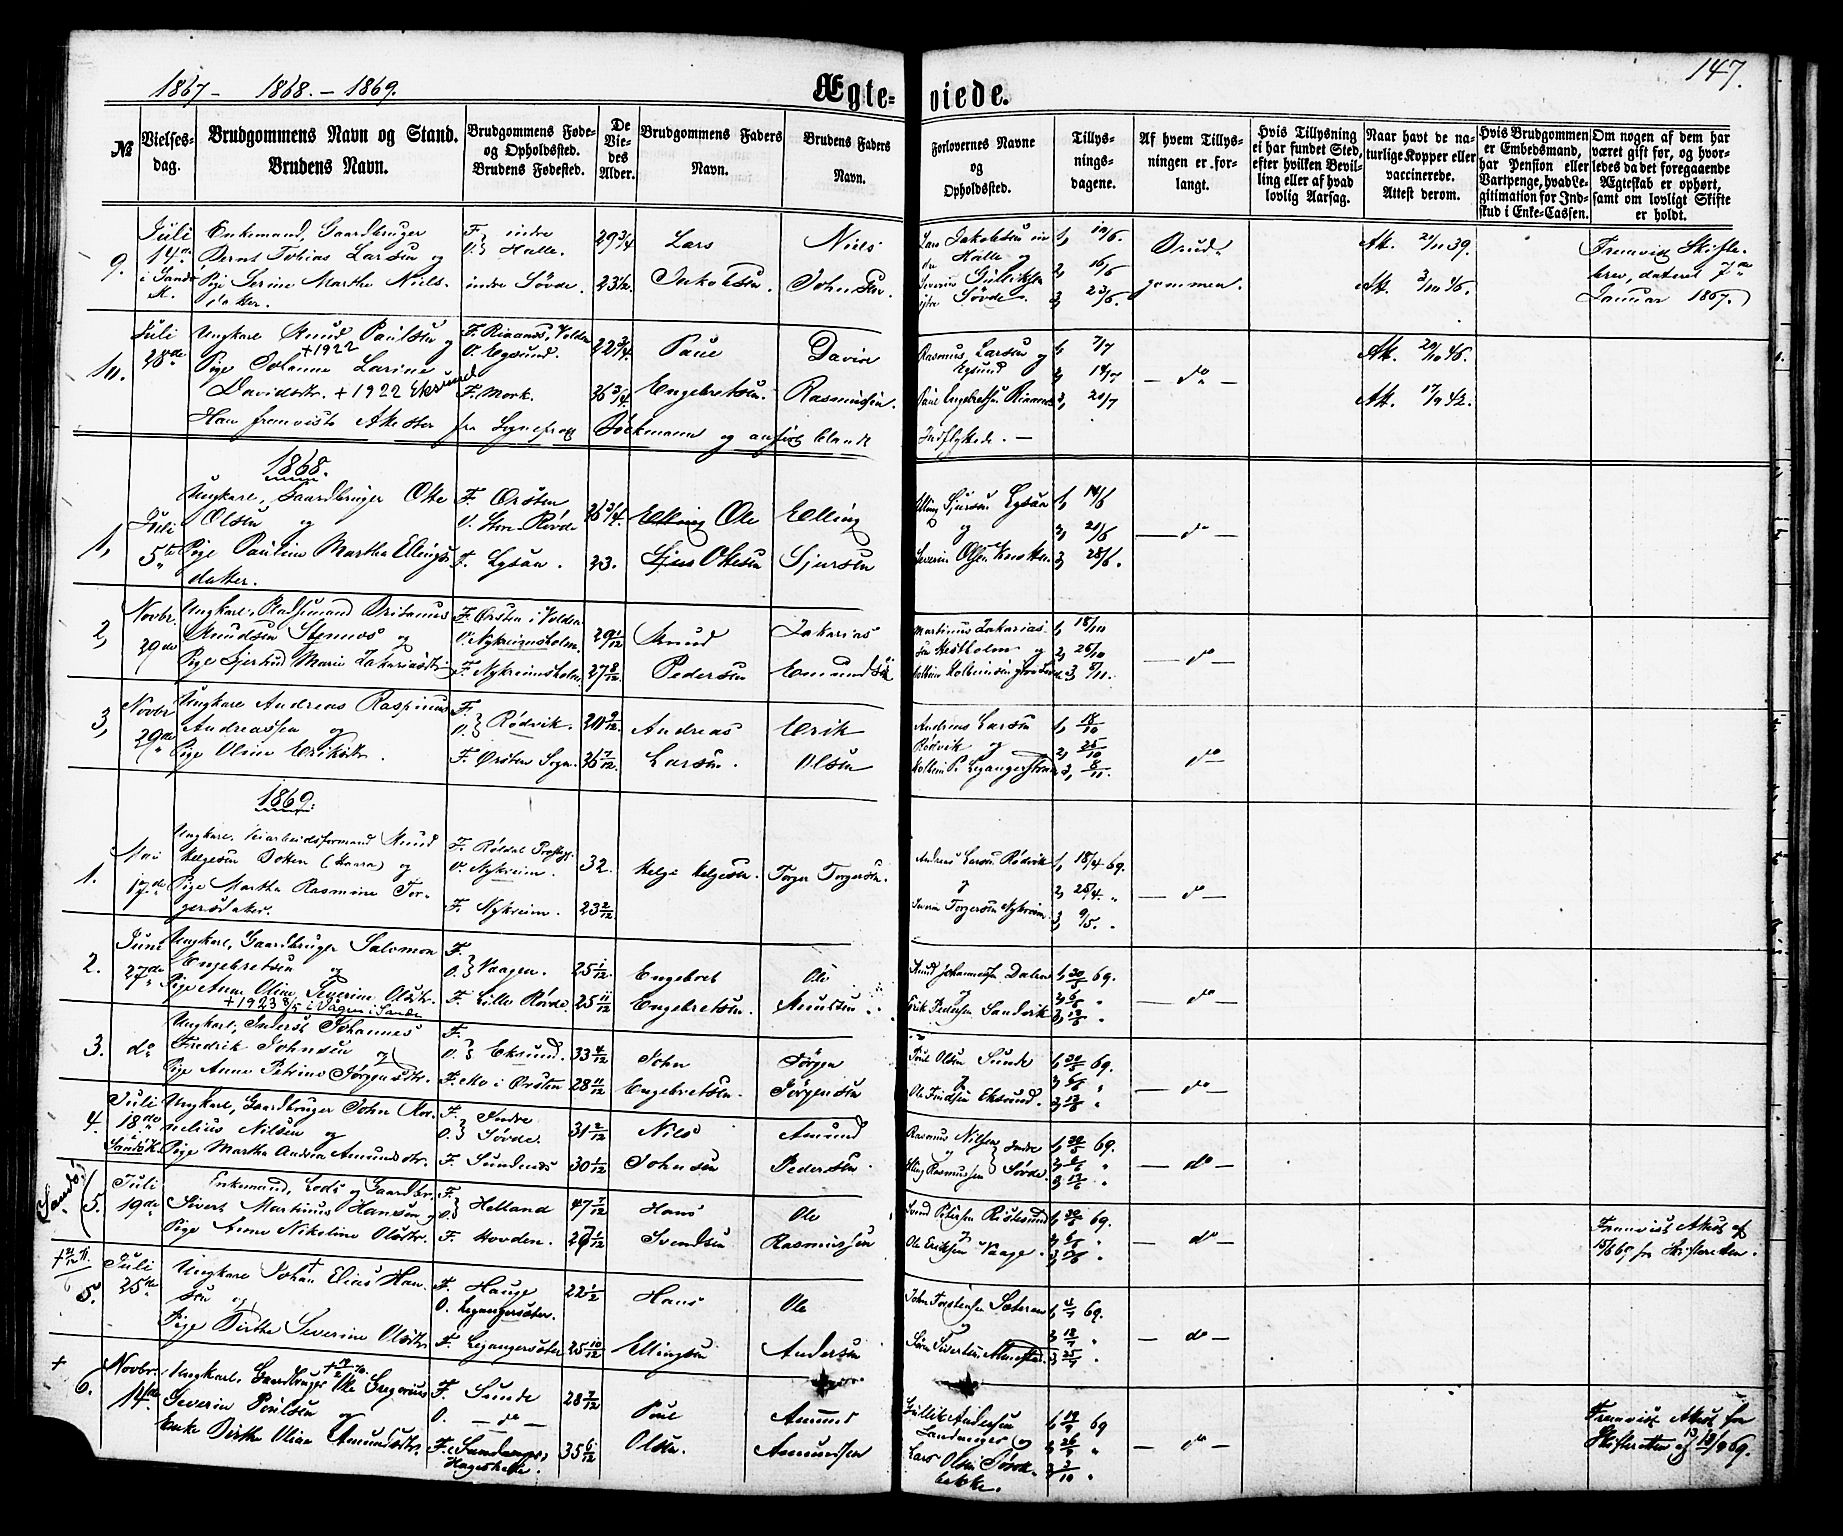 147.
1867 - 1868. - 1869.
Ægte- viede.
№
Vielses-
dag.
Brudgommens Navn og Stand.
Brudens Navn.
Brudgommens Føde-
og Opholdssted.
Brudens Fødested.
De
Vie-
des
Alder.
Brudgommens Faders
Navn.
Brudens Faders
Navn.
Forlovernes Navne
og
Opholdssted.
Tillys-
nings-
dagene.
Af hvem Tillys-
ningen er for-
langt.
Hvis Tillysning
ei har fundet Sted,
efter hvilken Bevil-
ling eller af hvad
lovlig Aarsag.
Naar havt de na-
turlige Kopper eller
vaccinerede.
Attest derom.
Hvis Brudgommen
er Embedsmand,
har Pension eller
Vartpenge, hvad Le-
gitimation for Ind-
skud i Enke-Cassen.
Om nogen af dem har
været gift før, og hvor-
ledes da det foregaaende
Ægteskab er ophørt,
samt om lovligt Skifte
er holdt.
9.
Juli
14de
i Sandø
K.
Enkemand, Gaardbruger
Bernt Tobias Larsen og
Pige Serine Marthe Niels-
datter.
F. } indre
O. } Halle.
indre Søvde.
29 3/4
23 1/2.
Lars
Jakobsen
Niels
Johnsen
Lars Jakobsen in
dre Halle og
Severin Gulliksen
Søvde.
1, 10/6.
2, 16/6
3, 23/6.
Brud-
gommen.
Att. 21/11 39.
Att. 3/10 45.
Fremvist Skifte-
brev, dateret 7de
Januar 1867.
10.
Juli
28de
Ungkare Knud Paulsen og
+1922
Pige Johanne Larine
Davidsdtr. +1922 Eksund
F. Riaanes, Volden
O. Egsund.
F. Mork.
22 3/4.
26 3/4.
Paul
Engebretsen.
David
Rasmussen.
Rasmus Larsen og
Egsund
Paul Engebretsen Riaanes
1, 7/7
2, 14/7
3, 21/7
- do -
Att. 20/10 46.
Att. 17/9 42.
Han fremviste Attester fra Sognepræst Bøckmann og anført blandt Indflyttede. -
1868.
1,
Juli
5te
Ungkarl, Gaardbruger Otte
Olsen og
Pige Pauline Martha Ellings-
datter.
F. Ørsten
O. Store Røvde
F. Lysaa.
26 3/4.
23.
Elling Ole
Sjurs Ottesen
Elling
Sjursen
Elling Sjursen Lysaa
og
Severin Olsen Knotten
1, 14/6
2, 21/6
3, 28/6.
- do -
2,
Novbr.
29de
Ungkarl, Pladsemand Britanus
Knudsen Stennes og
Pige Gjertrud Marie Zakariasdtr.
F. Ørsten i Volden
O. Nykreimsholm.
F. Nykreimsholm.
29 1/12
27 8/12.
Knud
Pedersen
Zakarias
Emundsen
Martinus Zakarias-
sen Hestholm og
1, 18/10
2, 25/10
3, 8/11.
- do -
3,
Novbr
29de
Ungkare Andreas Raspinus
Andreassen og
Pige Oline Eriksdtr.
F.
O. } Rødvik.
F. Ørsten Sogn.
20 9/12
26 7/12.
Andreas
Larsen.
Erik
Olsen
Andreas Larsen
Rødvik og
Kolbein P. Legangerstrand
1, 18/10
2, 25/10
3, 8/11.
do
1869.
1.
Mai
17de
Ungkare, Veiarbeidsformand Knud
Helgesen Botten (Haara) og
Pige Martha Rasmine Tor-
gersdatter.
F. Røldal Prestegj.
O. Nykreim.
F. Nykreim.
32.
23 2/12
Helge Helgesen.
Torger Torgersen.
Andreas Larsen Rødvik
og
Torgersen Nykreim.
1, 18/4 69.
2, 25/4. "
3, 9/5. "
- do -
2.
Juni
27de
Ungkarl, Gaardbruger Salomon
Engebretsen og
Pige Anne Oline Severine Olsdtr.
+1923 8/5 i Vågen i Sande
F.
O. } Vaagen.
F. Lille Røvde.
25 1/12.
25 11/12
Engebret
Engebretsen.
Ole
Knudsen
Knud Johannessen Dalen
og
Erik Pedersen Sandvik
1, 30/5 69.
2, 6/6 "
3, 13/6 "
- do -
3.
do
Ungkarl, Inderst Johannes
Fredrik Johnsen og
Pige Anne Petrine Jørgensdtr.
F.
O. } Eksund.
F. Mo i Ørsten
33 4/12
28 11/12
John
Engebretsen.
Jørgen
Jørgensen
Poul Olsen Sunde
og
Ole Findsen Eksund.
1, 30/5 69.
2, 6/6 "
3, 13/6 "
- do -
4.
Juli
18de
i
Sandø K.
Ungkarl, Gaardbruger John Kor-
nelius Nilsen og
Pige Martha Andrea Amundsdtr.
F. } Indre
O. } Søvde.
F. Sundnæs
31 2/12
30 1/12
Nils
Johnsen
Amund
Pedersen.
Rasmus Nilsen } Indre
og
Elling Rasmussen } Søvde.
1, 30/5 69.
2, 6/6 "
3, 13/6 "
- do -
(Sandø)
(5.
Juli
19de
Enkemand, Lods og Gaardbr.
Sivert Martinus Hansen og
Pige Anne Nikoline Olsdtr.
F.
O. } Helland
F. Hovden.
47 7/12
27 1/12
Hans
Svendsen
Ole
Rasmussen
Knud Petersen Ristesund
og
Ole Eriksen Vaage.
1, 30/5 69.
2, 6/6 "
3, 13/6 "
- do -
Fremvist Attest af
15/6 65 fra Skifteretten.
5.
Juli
25de
Ungkare Johan Elias Han-
sen og
Pige Birthe Severine Olsdtr.
F. Hauge
O. Legangersæter.
F. Legangersæter
22 1/2
25 10/12
Hans
Ellingsen
Ole
Andersen
John Torstensen Sæteren
og
Søren Sivertsen
1, 4/7 69.
2, 18/7 "
3, 25/7 "
- do -
+
6.
Novbr.
14de
Ungkarl, Gaardbruger Ole Gregorius
Severin Poulsen og
Enke Birthe Oline Amundsdtr.
F. Sunde
O. - do -
F. Landanger,
Hageskelle.
28 7/12
35 6/12
Poul
Olsen.
Amund
Asmundsen
Gullik Andersen
Landanger og
Lars Olsen Søvde-
bække.
1, 19/9 69
2, 26/9 "
3, 3/10 "
- do -
Fremvist Attest fra
Skifteretten af 13/9 69.